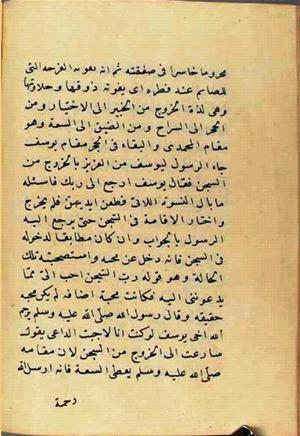 محروما خاسرا فى صفقته ثم انه يفوته الفرحة التى
للصائم عند فطره اى يفوته ذوقها وحلاوتها
وهى لذة الخروج من الجبر الى الاختيار ومن
الحجر الى السراح ومن الضيق الى السعة وهو
مقام المحمدى والبقاء فى الحجر مقام يوسف
جاء الرسول ليوسف من العزيز بالخروج من
السجن فقال يوسف ارجع الى ربك فاسئله
ما بال النسوة اللاتى قطعن ايديهن فلم يخرج
واختار الاقامة فى السجن حتى يرجع اليه
الرسول بالجواب وان كان مطابقا لدخوله
فى السجن فانه دخل عن محبة واستصحبته تلك
الحالة وهو قوله رب السجن احب الى مما
يدعوننى اليه فكانت محبة اضافة لم تكن محبة
حقيقه وقال رسول الله صلى الله عليه وسلم يرحم
الله اخى يوسف لو كنت انا لاجبت الداعى يقول
سارعت الى الخروج من السجن لان مقامه
صلى الله عليه وسلم يعطى السعة فانه ارسل الله
رحمة